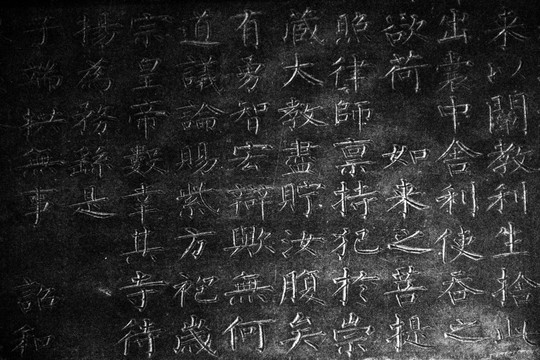 来以闡教利生捨此
出囊中舍利使吞之
欲荷 如来之菩提
照律師稟持犯於崇
藏大教盡貯汝腹矣
有勇智宏辯歟無何
道議論賜紫方袍歲
宗皇帝數幸其寺待
揚為務繇是
子端拱無事 詔和